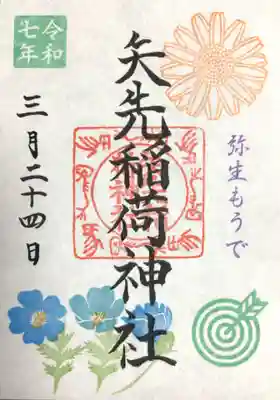 弥生もうで
矢先稲荷神社
令和
七年
三月二十四日